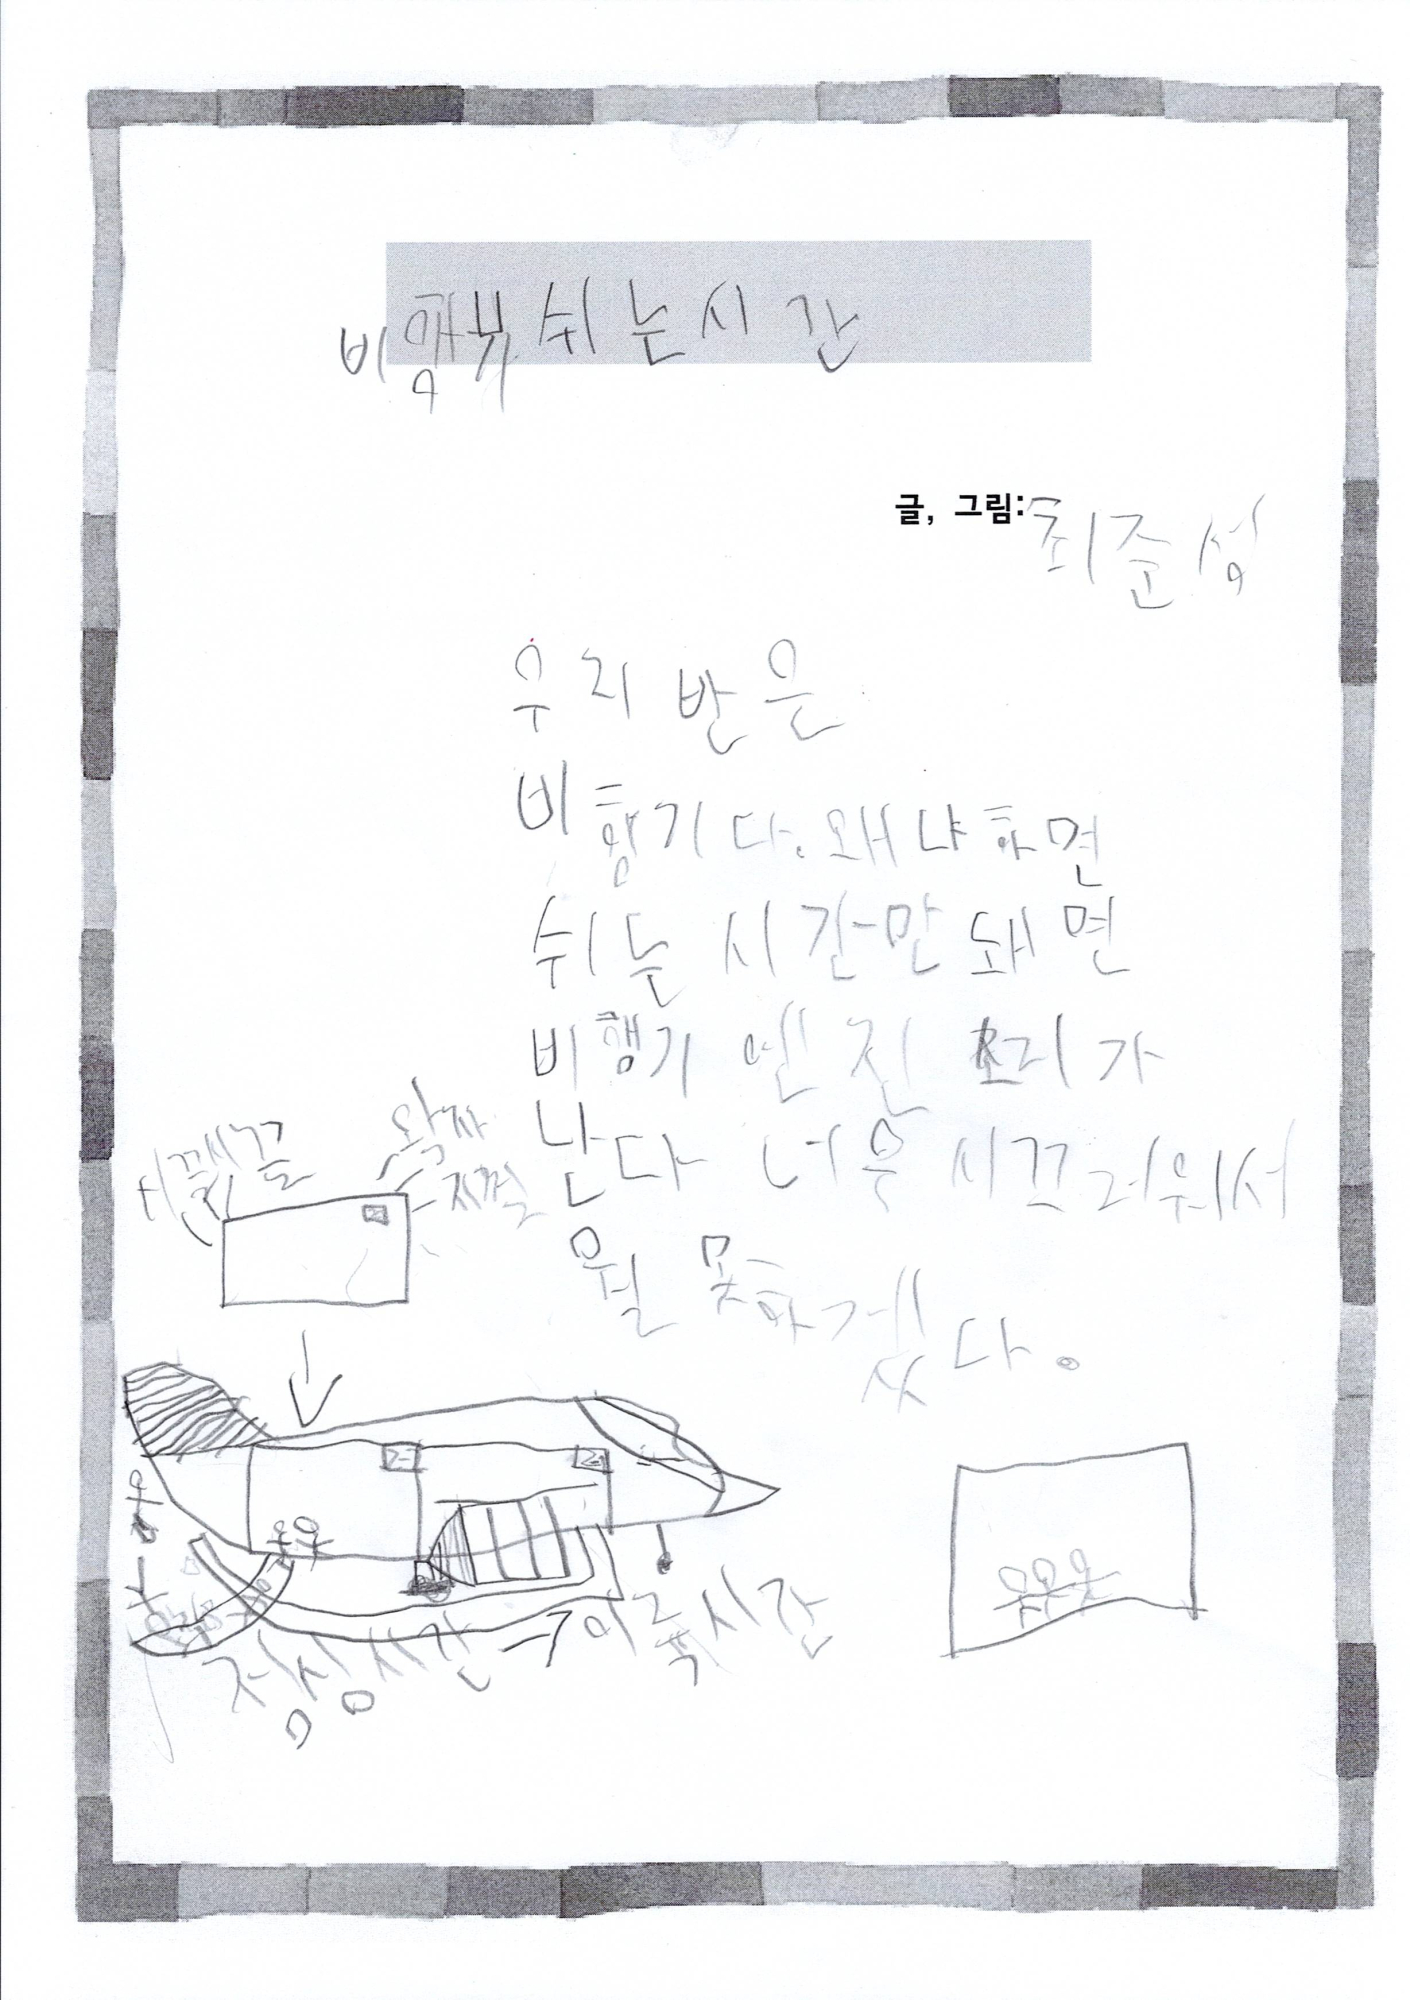 쉬는시간
글, 그림: 최준성
우리 반은
비행기다. 왜냐하면
쉬는 시간만 돼면
비행기 엔진 소리가
난다 너무 시끄러워서
뭘 못하겠다.
시끌시끌
왁자
지껄
2-
2-
점심시간→이륙시간